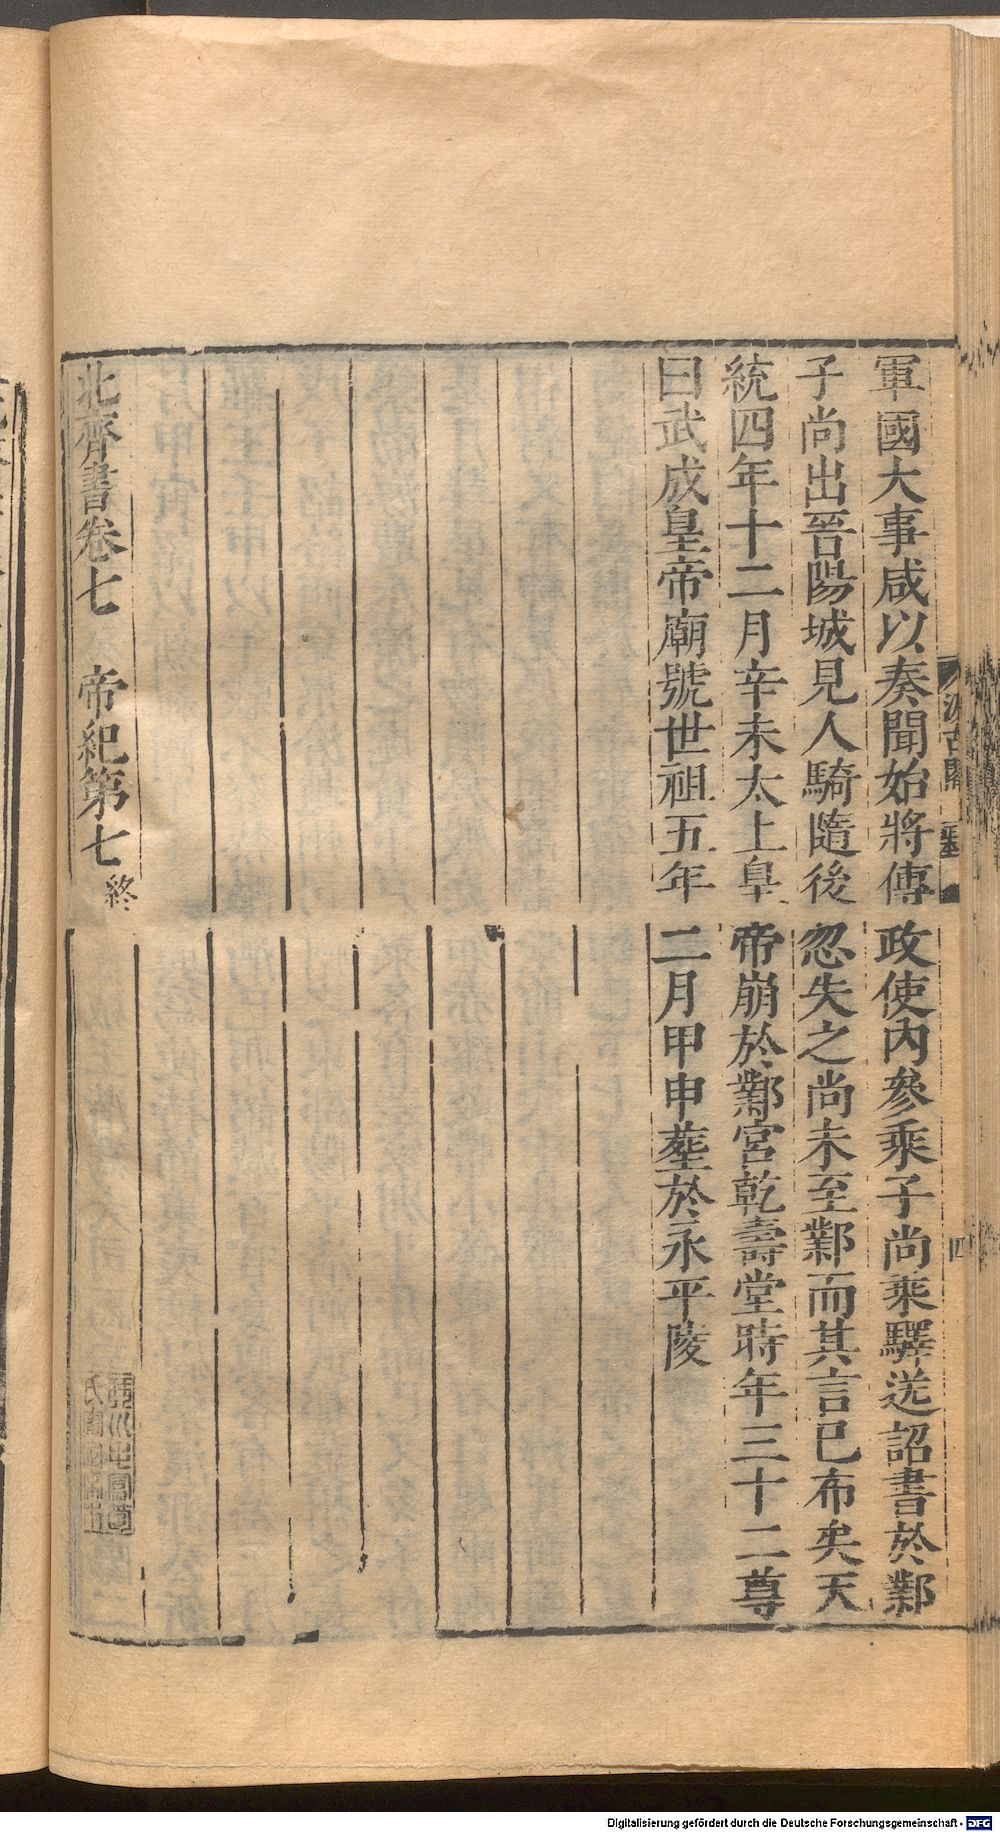 軍國大事咸以奏聞始將傳政使內參乘子尚乘驛送詔書於鄴
子尚出晉陽城見人騎隨後忽失之尚未至鄴而其言已布矣天
統四年十二月辛未太上皇帝崩於鄴宮乾壽堂時年三十二尊
曰武成皇帝廟號世祖五年二月甲申葬於永平陵
北齊書卷七 帝紀第七 終
四
Digitalisierung gefördert durch die Deutsche Forschungsgemeinschaft - DFG